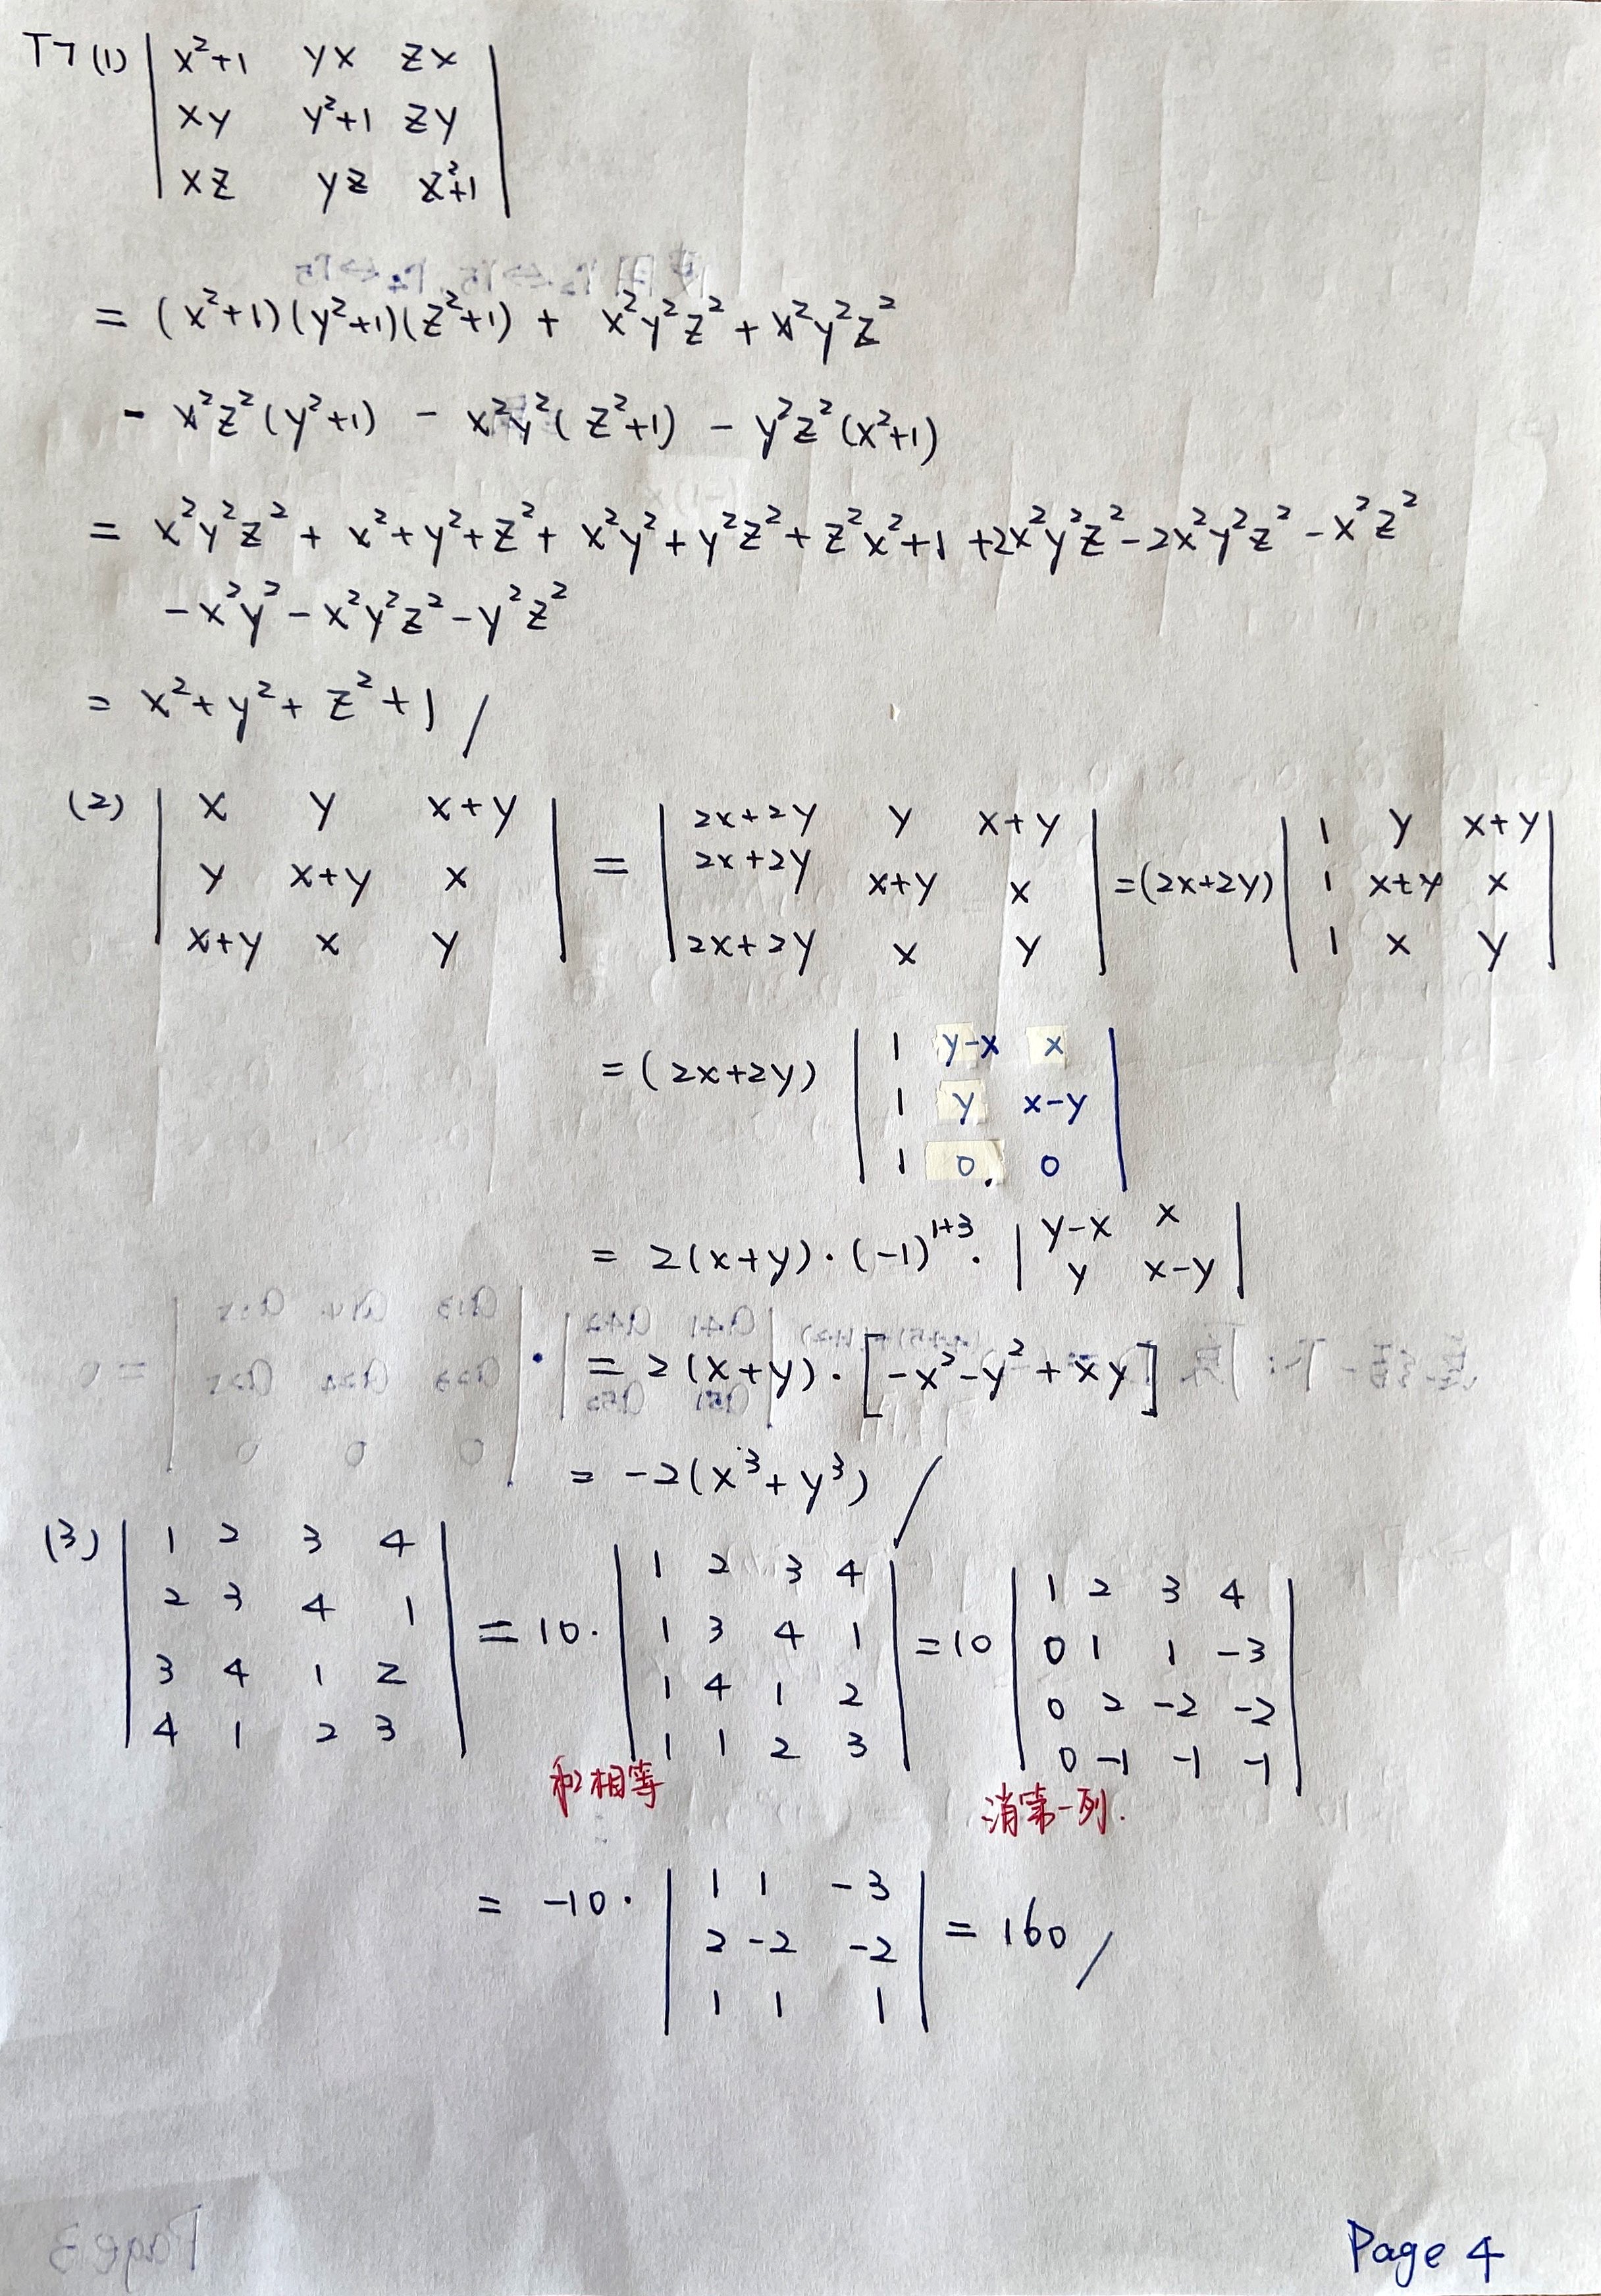 T7 (1) | x²+1 yx zx |
| xy y²+1 zy |
| xz yz z²+1 |
= (x²+1)(y²+1)(z²+1) + x²y²z² + x²y²z²
- x²z²(y²+1) - x²y²(z²+1) - y²z²(x²+1)
= x²y²z² + x²+y²+z²+ x²y²+y²z²+z²x²+1 +2x²y²z²-2x²y²z²-x²z²
-x²y²-x²y²z²-y²z²
= x²+y²+z²+1 /
(2) | x y x+y | = | 2x+2y y x+y | =(2x+2y) | 1 y x+y |
| y x+y x | | 2x+2y x+y x | | 1 x+y x |
| x+y x y | | 2x+2y x y | | 1 x y |
=(2x+2y) | 1 y-x x |
| 1 y x-y |
| 1 0 0 |
= 2(x+y)·(-1)¹⁺³· | y-x x |
| y x-y |
= 2(x+y)·[-x²-y²+xy]
= -2(x³+y³) /
(3) | 1 2 3 4 | =10· | 1 2 3 4 | =10 | 1 2 3 4 |
| 2 3 4 1 | | 1 3 4 1 | | 0 1 1 -3 |
| 3 4 1 2 | | 1 4 1 2 | | 0 2 -2 -2 |
| 4 1 2 3 | | 1 1 2 3 | | 0 -1 -1 -1 |
和相等 消第一列.
= -10· | 1 1 -3 | = 160 /
| 2 -2 -2 |
| 1 1 1 |
Page 4